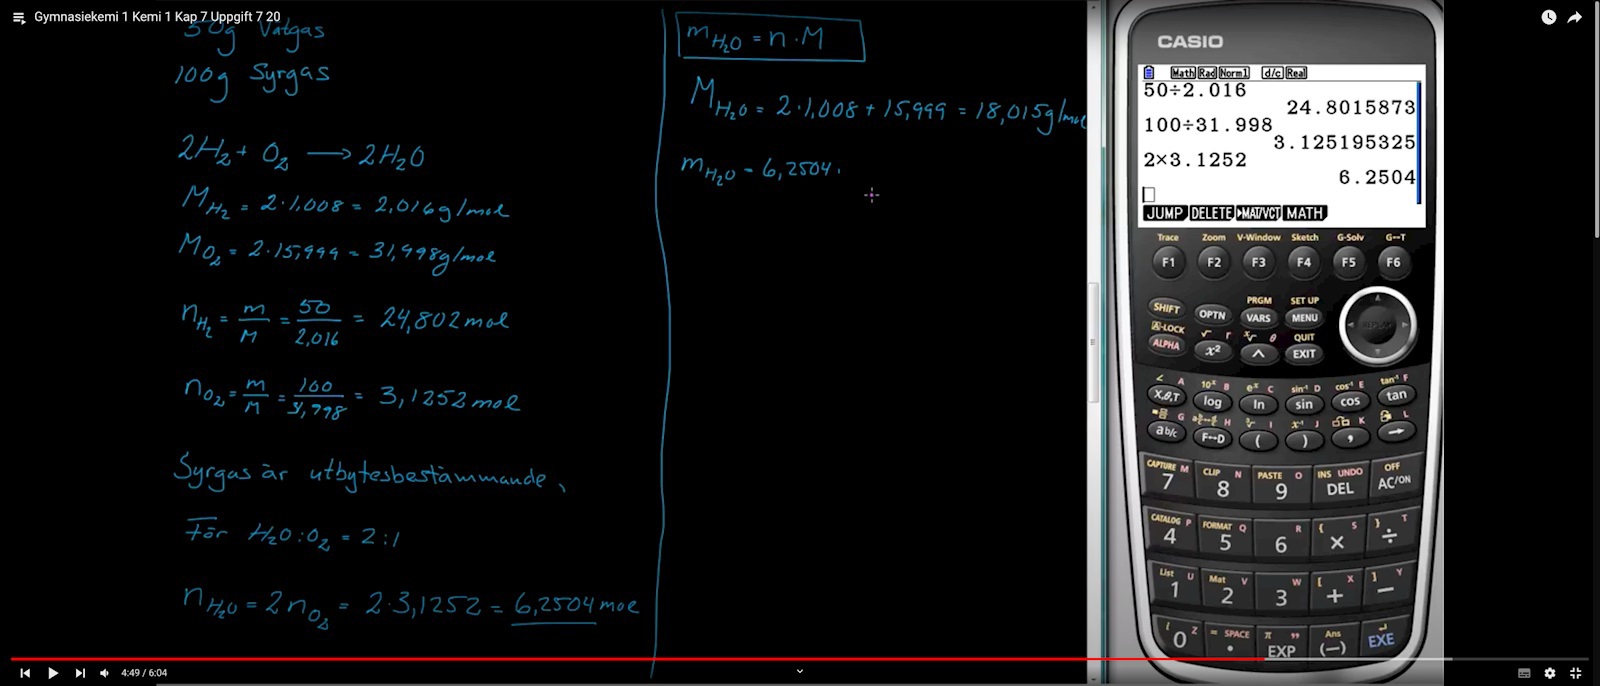 Gymnasiekemi 1 Kemi 1 Kap 7 Uppgift 7 20
50g Vätgas
100g Syrgas
2H₂ + O₂ → 2H₂O
M_H₂ = 2·1,008 = 2,016g/mol
M_O₂ = 2·15,999 = 31,998g/mol
n_H₂ = m/M = 50/2,016 = 24,802 mol
n_O₂ = m/M = 100/31,998 = 3,1252 mol
Syrgas är utbytesbestämmande,
För H₂O:O₂ = 2:1
n_H₂O = 2n_O₂ = 2·3,1252 = 6,2504 mol
m_H₂O = n·M
M_H₂O = 2·1,008 + 15,999 = 18,015g/mol
m_H₂O = 6,2504·
CASIO
Math Rad Norm1 d/c Real
50÷2.016
24.8015873
100÷31.998
3.125195325
2×3.1252
6.2504
JUMP DELETE ►MAT/VCT MATH
Trace Zoom V-Window Sketch G-Solv G↔T
F1 F2 F3 F4 F5 F6
PRGM SET UP
SHIFT OPTN VARS MENU
A-LOCK √ r θ QUIT
ALPHA x² ^ EXIT
∠ A 10ˣ B eˣ C sin⁻¹ D cos⁻¹ E tan⁻¹ F
X,θ,T log ln sin cos tan
G H I J K L
ab/c F↔D ( ) , →
CAPTURE M CLIP N PASTE O INS UNDO OFF
7 8 9 DEL AC/ON
CATALOG P FORMAT Q R { S } T
4 5 6 × ÷
List U Mat V W [ X ] Y
1 2 3 + −
i Z = SPACE π " Ans
0 . EXP (−) EXE
4:49 / 6:04